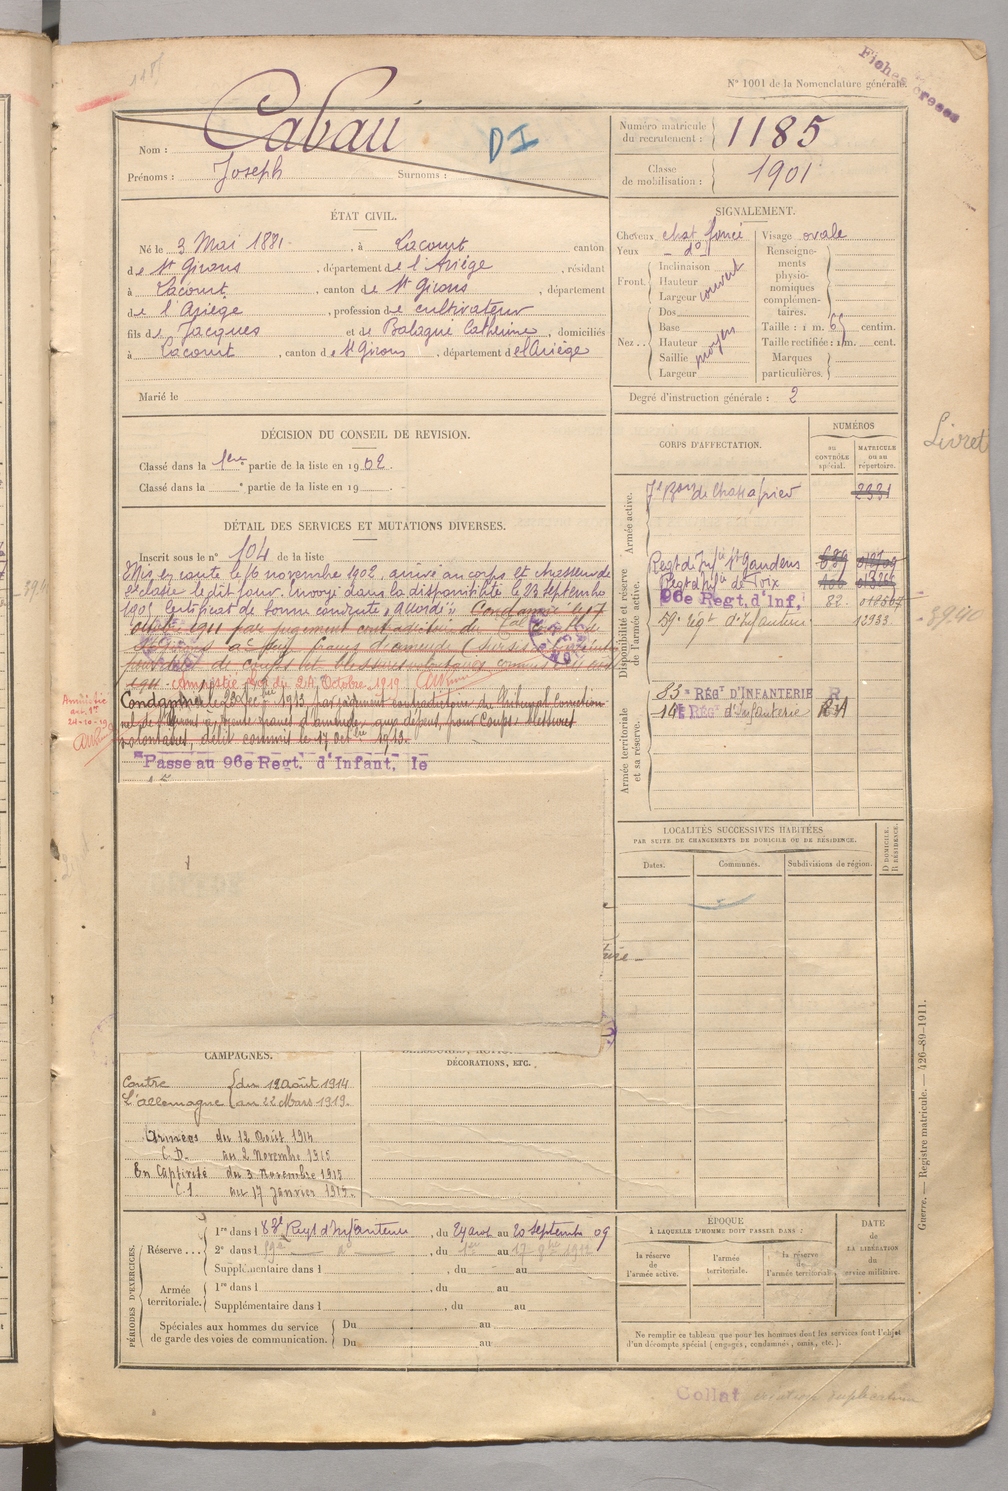 N° 1001 de la Nomenclature générale.
Fiches
1185
Nom : Cabau
DI
Prénoms : Joseph Surnoms :
Numéro matricule du recrutement : 1185
Classe de mobilisation : 1901
ÉTAT CIVIL.
Né le 3 Mai 1881, à Lacourt canton
de St Girons, département de l'Ariège, résidant
à Lacourt, canton de St Girons, département
de l'Ariège, profession de cultivateur
fils de Jacques et de Balagué Catherine, domiciliés
à Lacourt, canton de St Girons, département de l'Ariège
Marié le
SIGNALEMENT.
Cheveux chat foncé
Yeux do
Front. Inclinaison
Hauteur
Largeur
couvert
Nez.. Dos
Base
Hauteur
Saillie
Largeur
moyen
Visage ovale
Renseignements physionomiques complémentaires.
Taille : 1 m. 65 centim.
Taille rectifiée : 1 m. cent.
Marques particulières.
Degré d'instruction générale : 2
DÉCISION DU CONSEIL DE REVISION.
Classé dans la 1ère partie de la liste en 1902.
Classé dans la e partie de la liste en 19
DÉTAIL DES SERVICES ET MUTATIONS DIVERSES.
Inscrit sous le n° 104 de la liste
Mis en route le 16 novembre 1902, arrivé au corps et chasseur de
2e classe le dit jour. Envoyé dans la disponibilité le 23 septembre
1905 Certificat de bonne conduite "Accordé". Condamné le 17
octobre 1911 par jugement contradictoire du
St Girons à francs d'amende
pour de coups et blessures volontaires commis
1911 - amnistié du 24 Octobre 1919
Condamné le 23 1913 par jugement contradictoire du Tribunal Correction-
nel de St Girons à trente francs d'amende, aux dépens, pour Coups et blessures
volontaires, délit commis le 17 octbre 1913.
Amnistié
24-10-19
Passé au 96e Regt. d'Infant. le
CORPS D'AFFECTATION.
NUMÉROS
AU CONTRÔLE spécial.
MATRICULE OU AU répertoire.
Armée active.
7e Bon de Chasse à pied 2331
Disponibilité et réserve de l'armée active.
Regt d'Infie St Gaudens
Regt d'Infie de Foix
96e Regt. d'Inf. 82.
59e régt d'Infanterie 12933
Armée territoriale et sa réserve.
83e RÉGT D'INFANTERIE R
14e RÉGT d'Infanterie
Livret
3940
LOCALITÉS SUCCESSIVES HABITÉES
PAR SUITE DE CHANGEMENTS DE DOMICILE OU DE RÉSIDENCE.
Dates. Communes. Subdivisions de région.
D. DOMICILE. R. RÉSIDENCE.
CAMPAGNES.
Contre l'allemagne du 12 Août 1914
au 22 Mars 1919.
Armées du 12 Août 1914
C.D. au 2 Novembre 1915
En Captivité du 3 Novembre 1915
C.S. au 17 Janvier 1919.
DÉCORATIONS, ETC.
PÉRIODES D'EXERCICES.
Réserve...
1re dans l 83e Regt d'Infanterie, du 24 août au 20 septembre 09
2e dans l 59e do, du 1er au 17 9bre 1912
Supplémentaire dans l , du au
Armée territoriale.
1re dans l , du au
Supplémentaire dans l , du au
Spéciales aux hommes du service de garde des voies de communication.
Du au
Du au
ÉPOQUE
À LAQUELLE L'HOMME DOIT PASSER DANS :
la réserve de l'armée active.
l'armée territoriale.
la réserve de l'armée territoriale.
DATE de LA LIBÉRATION du service militaire.
Ne remplir ce tableau que pour les hommes dont les services font l'objet
d'un décompte spécial (engagés, condamnés, omis, etc.).
Guerre. — Registre matricule. — 426-89-1911.
Collat